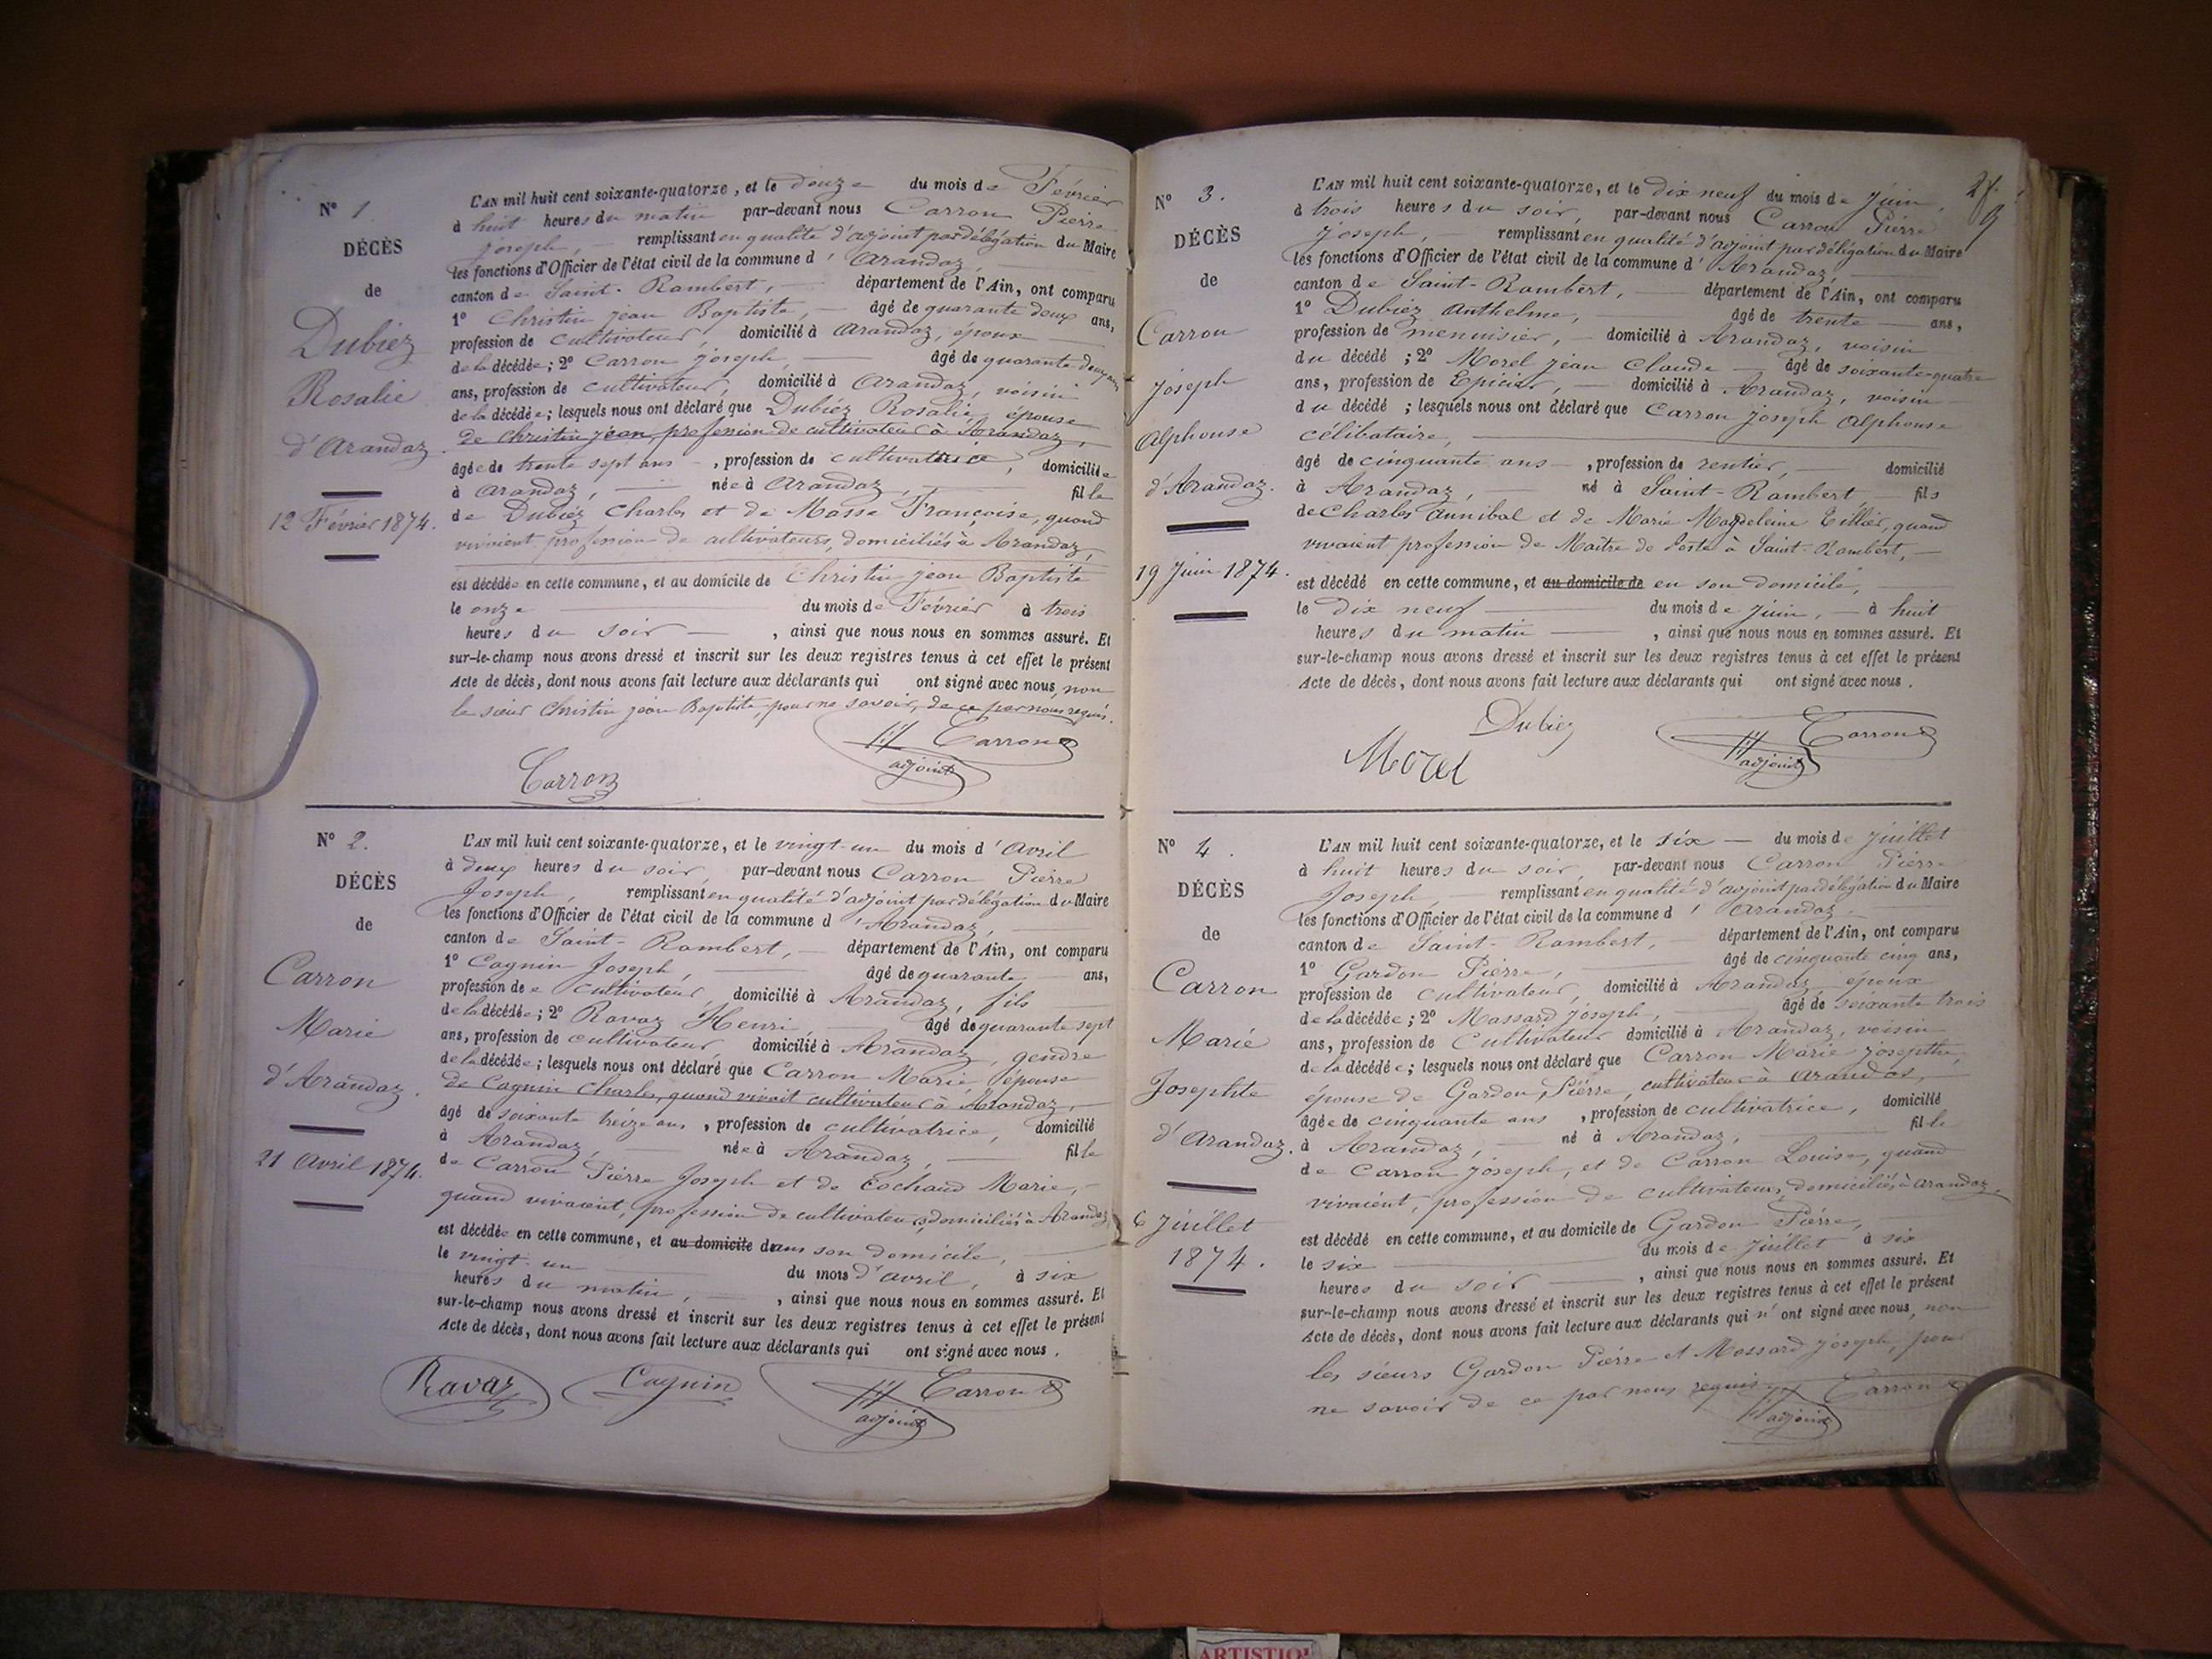 N° 1
DÉCÈS
de
Dubiez
Rosalie
d'Arandaz.
12 Février 1874.
L'AN mil huit cent soixante-quatorze, et le douze du mois de Février
à huit heures du matin par-devant nous Carron Pierre
Joseph, — remplissant en qualité d'adjoint par délégation du Maire
les fonctions d'Officier de l'état civil de la commune d' Arandaz,
canton de Saint-Rambert, — département de l'Ain, ont comparu
1° Christin Jean Baptiste, — âgé de quarante deux ans,
profession de cultivateur, domicilié à Arandaz, époux
de la décédée; 2° Carron Joseph, — âgé de quarante deux ans
ans, profession de cultivateur, domicilié à Arandaz, voisin
de la décédée; lesquels nous ont déclaré que Dubiez Rosalie, épouse
de Christin Jean, profession de cultivateur à Arandaz,
âgée de trente sept ans —, profession de cultivatrice, domiciliée
à Arandaz, — née à Arandaz, — fille
de Dubiez Charles et de Masse Françoise, quand
vivaient, profession de cultivateurs, domiciliés à Arandaz,
est décédée en cette commune, et au domicile de Christin Jean Baptiste
le onze — du mois de Février à trois
heures du soir —, ainsi que nous nous en sommes assuré. Et
sur-le-champ nous avons dressé et inscrit sur les deux registres tenus à cet effet le présent
Acte de décès, dont nous avons fait lecture aux déclarants qui ont signé avec nous, non
le sieur Christin Jean Baptiste, pour ne savoir, de ce par nous requis.
Carron
adjoint
Carron
N° 2.
DÉCÈS
de
Carron
Marie
d'Arandaz.
21 Avril 1874.
L'AN mil huit cent soixante-quatorze, et le vingt-un du mois d'Avril
à deux heures du soir, par-devant nous Carron Pierre
Joseph, remplissant en qualité d'adjoint par délégation du Maire
les fonctions d'Officier de l'état civil de la commune d'Arandaz,
canton de Saint-Rambert, — département de l'Ain, ont comparu
1° Cagnin Joseph, — âgé de quarante — ans,
profession de cultivateur, domicilié à Arandaz, fils
de la décédée; 2° Ravaz Henri, — âgé de quarante sept
ans, profession de cultivateur, domicilié à Arandaz, gendre
de la décédée; lesquels nous ont déclaré que Carron Marie, épouse
de Cagnin Charles, quand vivait cultivateur à Arandaz,
âgé de soixante treize ans, profession de cultivatrice, domicilié
à Arandaz, — née à Arandaz, — fille
de Carron Pierre Joseph et de Cochand Marie,
quand vivaient, profession de cultivateurs, domiciliés à Arandaz,
est décédée en cette commune, et au domicile dans son domicile,
le vingt-un — du mois d'avril, à six
heures du matin, —, ainsi que nous nous en sommes assuré. Et
sur-le-champ nous avons dressé et inscrit sur les deux registres tenus à cet effet le présent
Acte de décès, dont nous avons fait lecture aux déclarants qui ont signé avec nous.
Ravaz Cagnin Carron
adjoint
27.
9
N° 3.
DÉCÈS
de
Carron
Joseph
Alphonse
d'Arandaz.
19 Juin 1874.
L'AN mil huit cent soixante-quatorze, et le dix neuf du mois de Juin,
à trois heures du soir, par-devant nous Carron Pierre
Joseph, — remplissant en qualité d'adjoint par délégation du Maire
les fonctions d'Officier de l'état civil de la commune d'Arandaz,
canton de Saint-Rambert, — département de l'Ain, ont comparu
1° Dubiez Anthelme, âgé de trente — ans,
profession de menuisier, — domicilié à Arandaz, voisin
du décédé; 2° Morel Jean Claude — âgé de soixante-quatre
ans, profession de Epicier, — domicilié à Arandaz, voisin
du décédé; lesquels nous ont déclaré que Carron Joseph Alphonse
célibataire,
âgé de cinquante ans —, profession de rentier, — domicilié
à Arandaz, — né à Saint-Rambert — fils
de Charles Annibal et de Marie Magdeleine Tillier, quand
vivaient profession de Maître de Poste à Saint-Rambert, —
est décédé en cette commune, et au domicile de en son domicile,
le dix neuf — du mois de Juin, — à huit
heures du matin —, ainsi que nous nous en sommes assuré. Et
sur-le-champ nous avons dressé et inscrit sur les deux registres tenus à cet effet le présent
Acte de décès, dont nous avons fait lecture aux déclarants qui ont signé avec nous.
Dubiez Carron
Morel adjoint
N° 4.
DÉCÈS
de
Carron
Marie
Josephte
d'Arandaz.
6 Juillet
1874.
L'AN mil huit cent soixante-quatorze, et le six — du mois de Juillet
à huit heures du soir, par-devant nous Carron Pierre
Joseph, — remplissant en qualité d'adjoint par délégation du Maire
les fonctions d'Officier de l'état civil de la commune d' Arandaz
canton de Saint-Rambert, — département de l'Ain, ont comparu
1° Gardon Pierre, — âgé de cinquante cinq ans,
profession de cultivateur, domicilié à Arandaz, époux
de la décédée; 2° Massard Joseph, — âgé de soixante trois
ans, profession de Cultivateur domicilié à Arandaz, voisin
de la décédée; lesquels nous ont déclaré que Carron Marie Josepthe,
épouse de Gardon Pierre, cultivateur à Arandas,
âgée de cinquante ans, profession de cultivatrice, domicilié
à Arandaz, — né à Arandaz, — fille
de Carron Joseph, et de Carron Louise, quand
vivaient, profession de cultivateurs, domiciliés à Arandaz.
est décédé en cette commune, et au domicile de Gardon Pierre,
le six — du mois de Juillet à six
heures du soir —, ainsi que nous nous en sommes assuré. Et
sur-le-champ nous avons dressé et inscrit sur les deux registres tenus à cet effet le présent
Acte de décès, dont nous avons fait lecture aux déclarants qui n'ont signé avec nous, non
les sieurs Gardon Pierre et Massard Joseph, pour
ne savoir de ce par nous requis. Carron
adjoint
ARTISTIQ